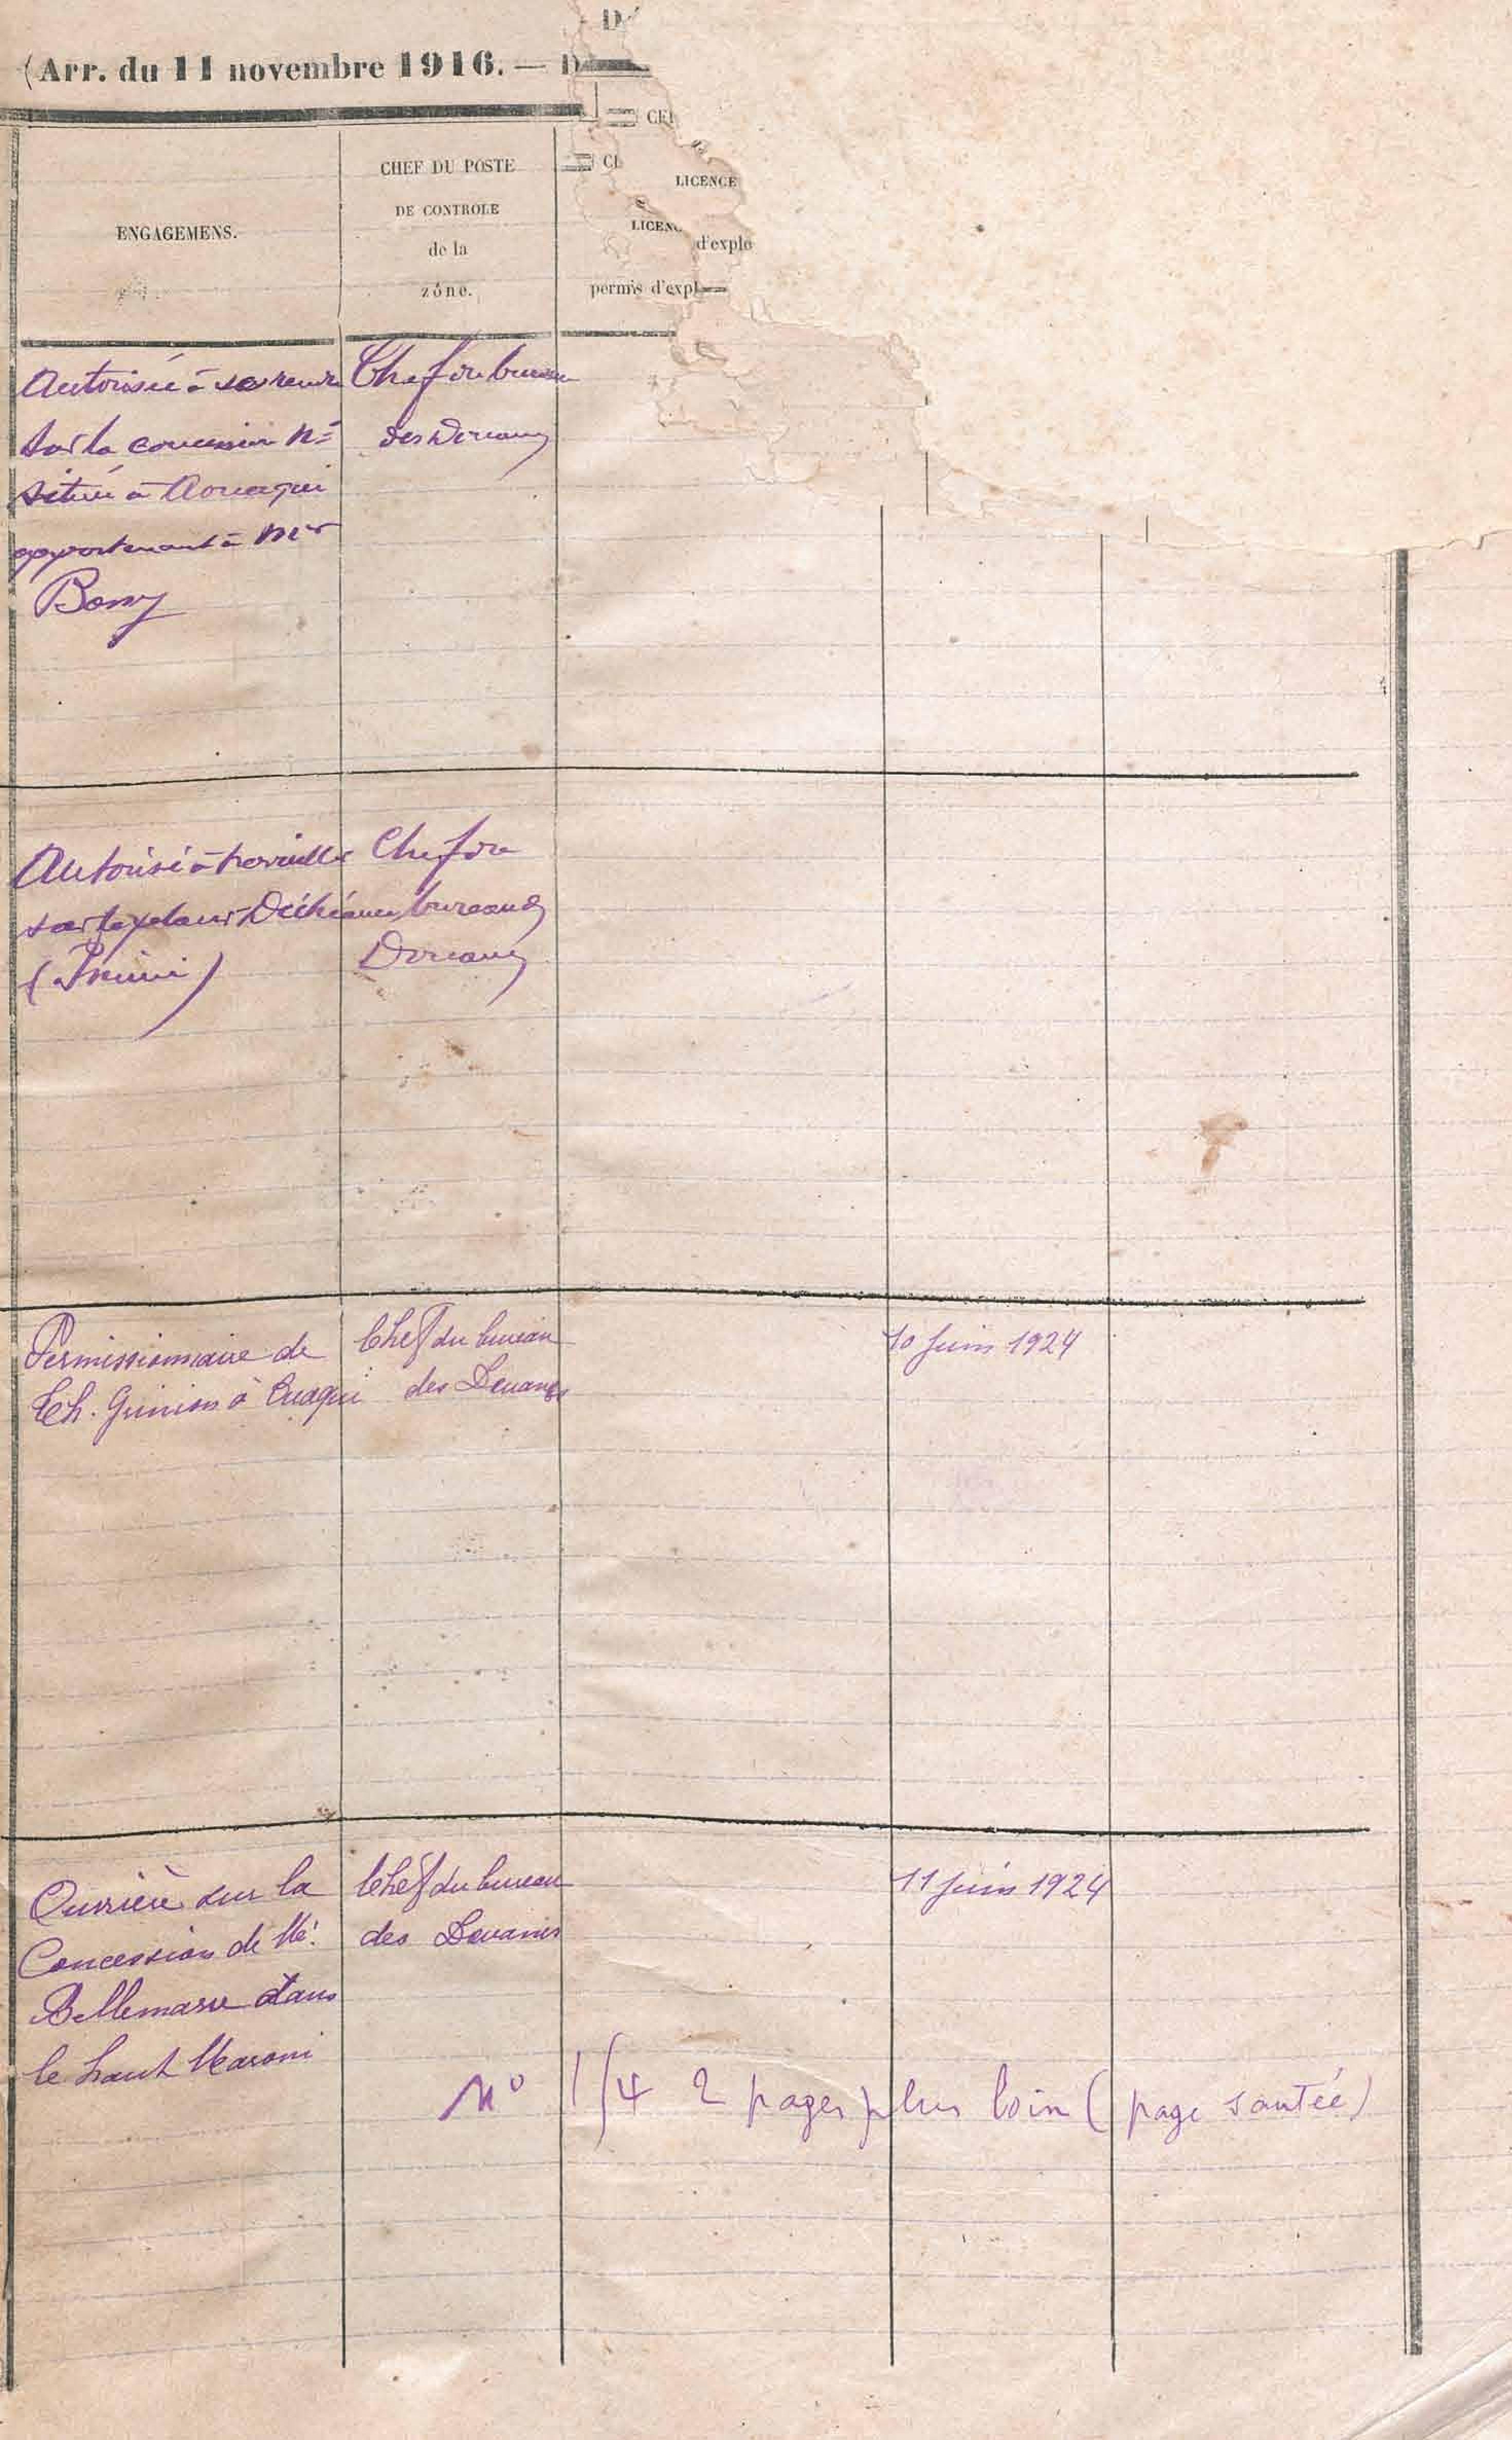 (Arr. du 11 novembre 1916. — D
ENGAGEMENS.
CHEF DU POSTE
DE CONTROLE
de la
zône.
CEI
CI
LICENCE
LICENC
d'explo
permis d'expl
Autorisée à se rendre
sur la concession N°
située à Aouaqui
appartenant à Mr
Bony
Chef du bureau
des Douanes
Autorisé à travailler
sur le placer Déchéance
(Inini)
Chef du
bureau des
Douanes
Permissionnaire de
Ch. à Ouaqui
Chef du bureau
des Douanes
10 Juin 1924
Ouvrière sur la
Concession de Mr.
Bellemare dans
le haut Maroni
Chef du bureau
des Douanes
11 Juin 1924
N° 1/4 2 pages plus loin (page sautée)